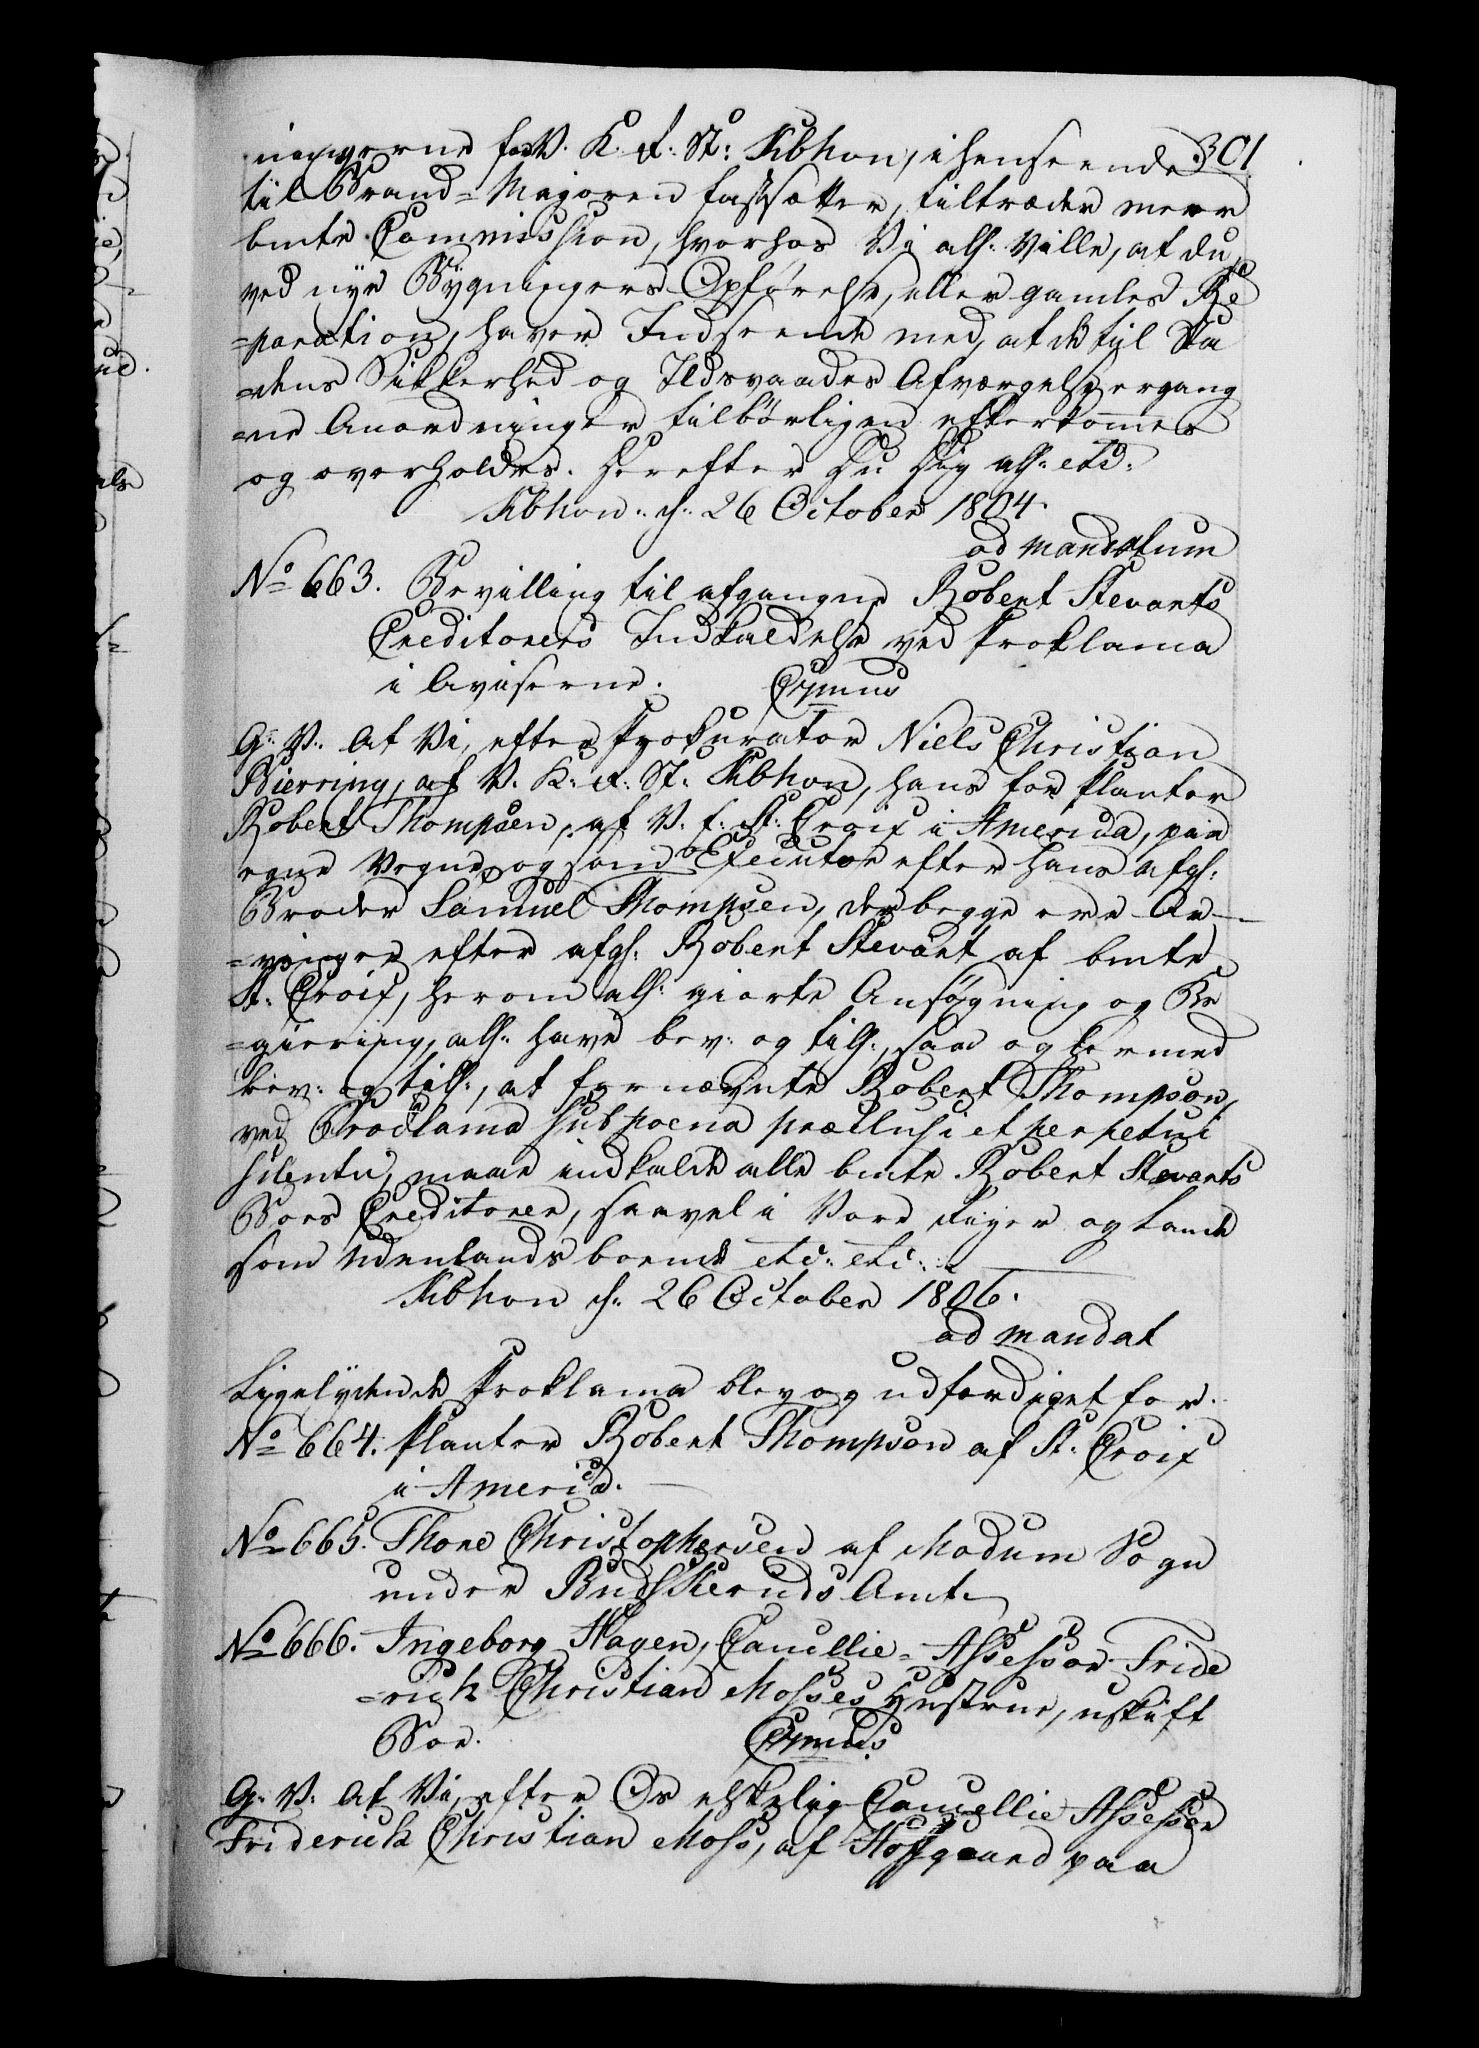 301
-ningerne for V. K. R. St: Kbhvn, i henseende
til Brand-Majoren fastsætter, tiltræder meer
bmte Commission, hvorhos Vi alln. ville, at du,
ved nye Bygningers Opførelse, eller gamles Re
-paration, haver Indseende med, at de til Sta
-dens Sikkerhed og Ildsvaades Afværgelse ergang
-ne Anordninger tilbørligen efterkommes
og overholdes. Herefter du dig alln. etc:
Kbhvn: d: 26 October 1804.
ad mandatum
No 663. Bevilling til afgangne Robert Stevarts
Creditorers Indkaldelse ved Proklama
i Aviserne. Crpmus
G: V. At Vi, efter Prokurator Niels Christian
Bierring, af V. K: R: St: Kbhvn, hans for Planter
Robert Thompsen, af V. f: St. Croix i America, paa
egne Vegne og som Executor efter hans afg:
Broder Samuel Thompsen, der begge ere Ar-
-vinger efter afg: Robert Stevart af bmte
St. Croix, herom alln. giorte Ansøgning og Be
-giering, alln. have bev: og till:, saa og hermed
bev: og till:, at fornævnte Robert Thompson,
ved Proclama sub poena præclusi et perpetui
silentii, maae indkalde alle bmte Robert Stevarts
Boes Creditorer, saavel i Vore Riger og Lande
som udenlands boende etc: etc: -
Kbhvn d: 26 October 1806.
ad mandat
Ligelydende Proklama blev og udfærdiget for
No 664. Planter Robert Thompson af St. Croix
i America.
No 665. Thore Christophersen af Modum Sogn
under Budskeruds Amt
No 666. Ingeborg Hagen, Cancellie-Assessor Fride
-rich Christian Mosses Hustrue, uskift
Boe. Crpmus
G: V. At Vi, efter Os elskelig Cancellie Assessor
Friderich Christian Moss, af Hofgaard paa